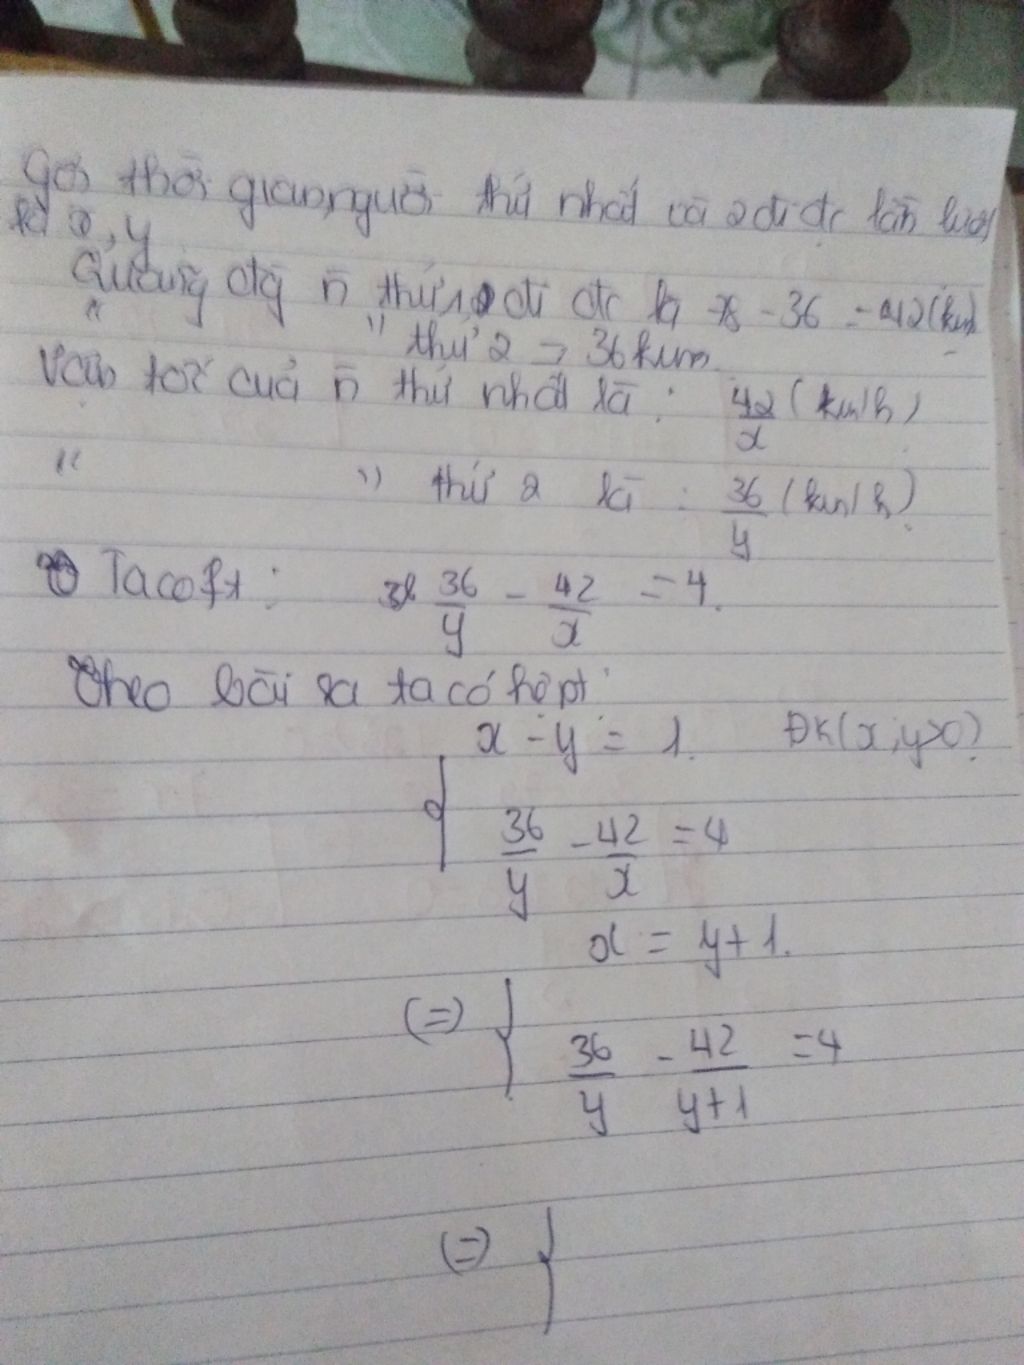 Gọi thời gian người thứ nhất và 2 đi đc lần lượt
là x, y
Quãng đg n thứ 1 đi đc là 78 - 36 = 42 (km)
" " thứ 2 → 36 km.
Vận tốc của n thứ nhất là : 42/x (km/h)
" " thứ 2 là : 36/y (km/h)
Ta có ft : 36/y - 42/x = 4.
Theo bài ra ta có hệ pt:
x - y = 1. ĐK (x, y>0)
36/y - 42/x = 4
x = y + 1.
(=) 36/y - 42/y+1 = 4
(=)